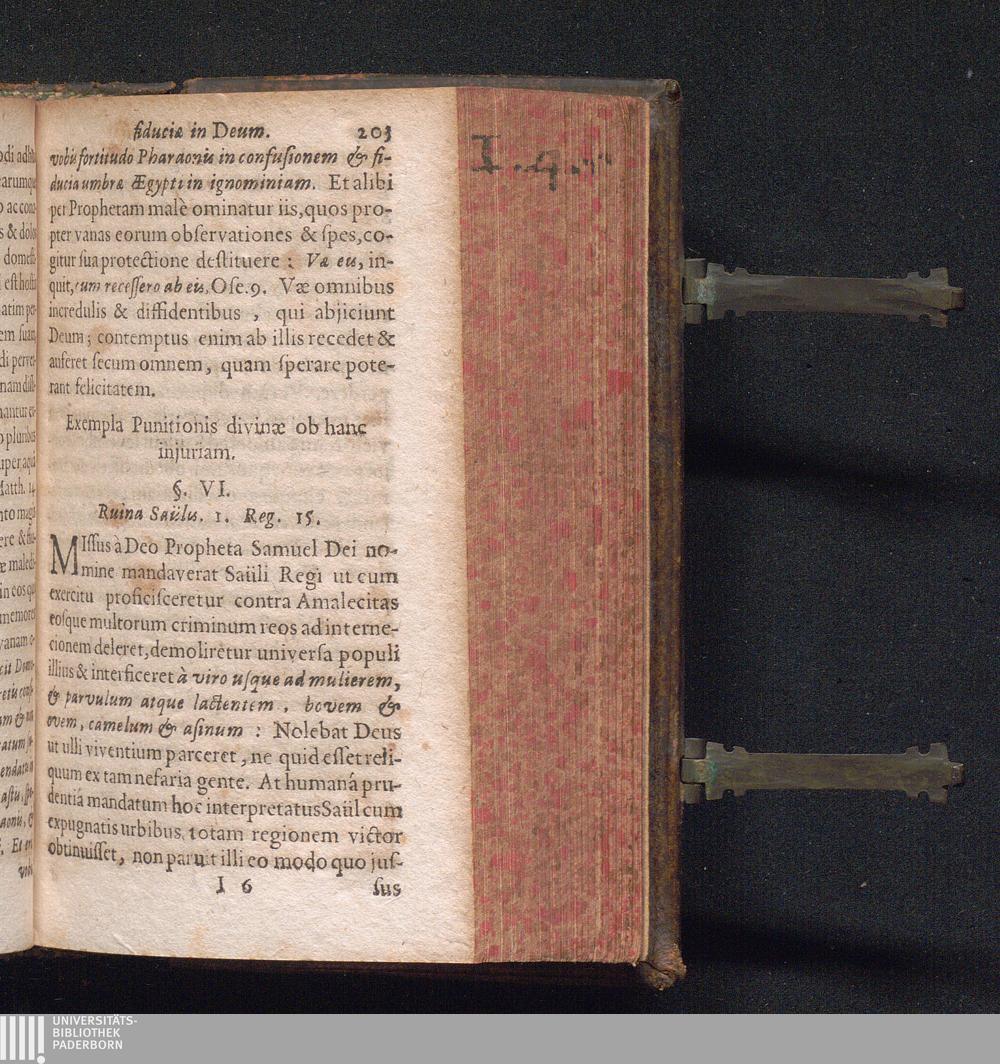 fiduciæ in Deum. 203
vobis fortitudo Pharaonis in confusionem & fi-
ducia umbræ Ægypti in ignominiam. Et alibi
per Prophetam malè ominatur iis, quos pro-
pter vanas eorum observationes & spes, co-
gitur sua protectione destituere : Væ eis, in-
quit, cum recessero ab eis, Ose. 9. Væ omnibus
incredulis & diffidentibus , qui abjiciunt
Deum ; contemptus enim ab illis recedet &
auferet secum omnem, quam sperare pote-
rant felicitatem.
Exempla Punitionis divinæ ob hanc
injuriam.
§. VI.
Ruina Saülis. 1. Reg. 15.
MIssus à Deo Propheta Samuel Dei no-
mine mandaverat Saüli Regi ut cum
exercitu proficisceretur contra Amalecitas
eosque multorum criminum reos ad interne-
cionem deleret, demoliretur universa populi
illius & interficeret à viro usque ad mulierem,
& parvulum atque lactentem , bovem &
ovem, camelum & asinum : Nolebat Deus
ut ulli viventium parceret, ne quid esset reli-
quum ex tam nefaria gente. At humanâ pru-
dentiâ mandatum hoc interpretatus Saül cum
expugnatis urbibus, totam regionem victor
obtinuisset, non paruit illi eo modo quo jus-
I 6 sus
UNIVERSITÄTS-
BIBLIOTHEK
PADERBORN